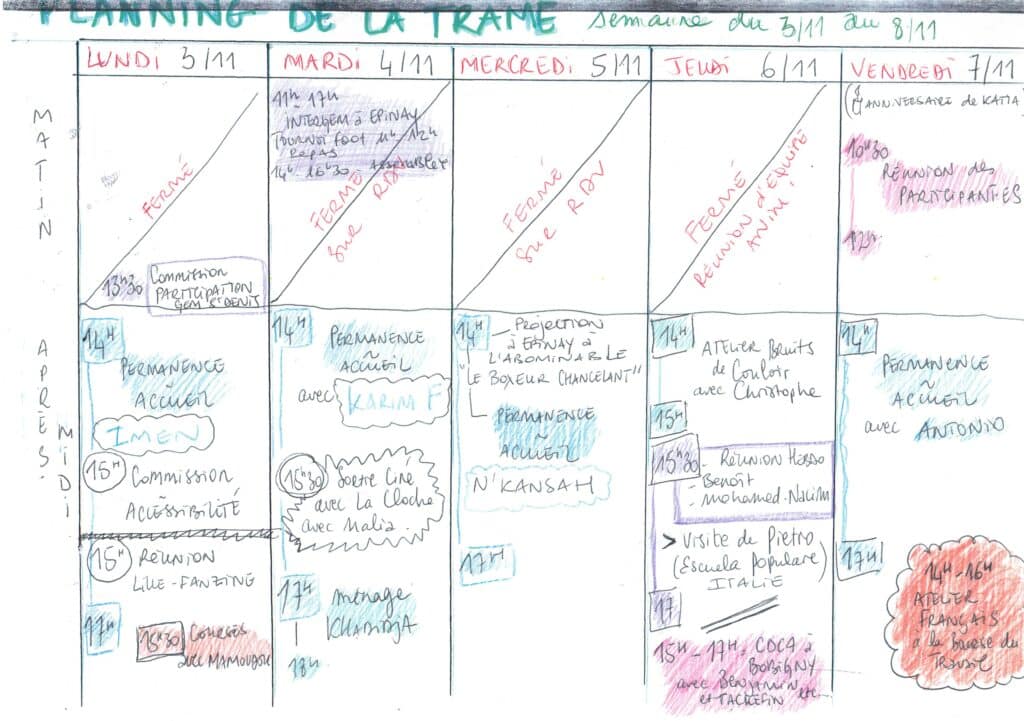 PLANNING DE LA TRAME semaine du 3/11 au 8/11
LUNDI 3/11
MARDI 4/11
MERCREDI 5/11
JEUDI 6/11
VENDREDI 7/11
MATIN
FERMÉ
13H30 Commission
PARTICIPATION
GEM ST DENIS
11H - 17H
INTERGEM à EPINAY
TOURNOI FOOT 11H 12H
REPAS
14H 16H30
FERMÉ
SUR RDV
FERMÉ
SUR RDV
FERMÉ
RÉUNION D'ÉQUIPE
(ANNIVERSAIRE de KATIA)
10H30
RÉUNION des
PARTICIPANT·ES
APRÈS-MIDI
14H
PERMANENCE
~
ACCUEIL
IMEN
15H Commission
ACCÈSSIBILITÉ
15H RÉUNION
LILLE-FANZINE
17H
15H30 COURSES
avec MAMOUDOU
14H
PERMANENCE
~
ACCUEIL
avec KARIM F
15H30 Sortie Ciné
avec La Cloche
avec Malia.
17H ménage
KHADIDJA
18H
14H PROJECTION
à EPINAY à
L'ABOMINABLE
"LE BOXEUR CHANCELANT"
PERMANENCE
~
ACCUEIL
N'KANSAH
17H
14H
ATELIER Bruits
de Couloir
avec Christophe
15H
15H30 - RÉUNION HEBDO
Benoît
- Mohamed-Nacim
> Visite de Pietro
(Escuela Populaire)
ITALIE
17
15H - 17H. COCA à
BOBIGNY
avec BENJAMIN
et TACKEFIN etc
14H
PERMANENCE
~
ACCUEIL
avec ANTONIO
17H
14H - 16H
ATELIER
FRANÇAIS
à la bourse du
Travail